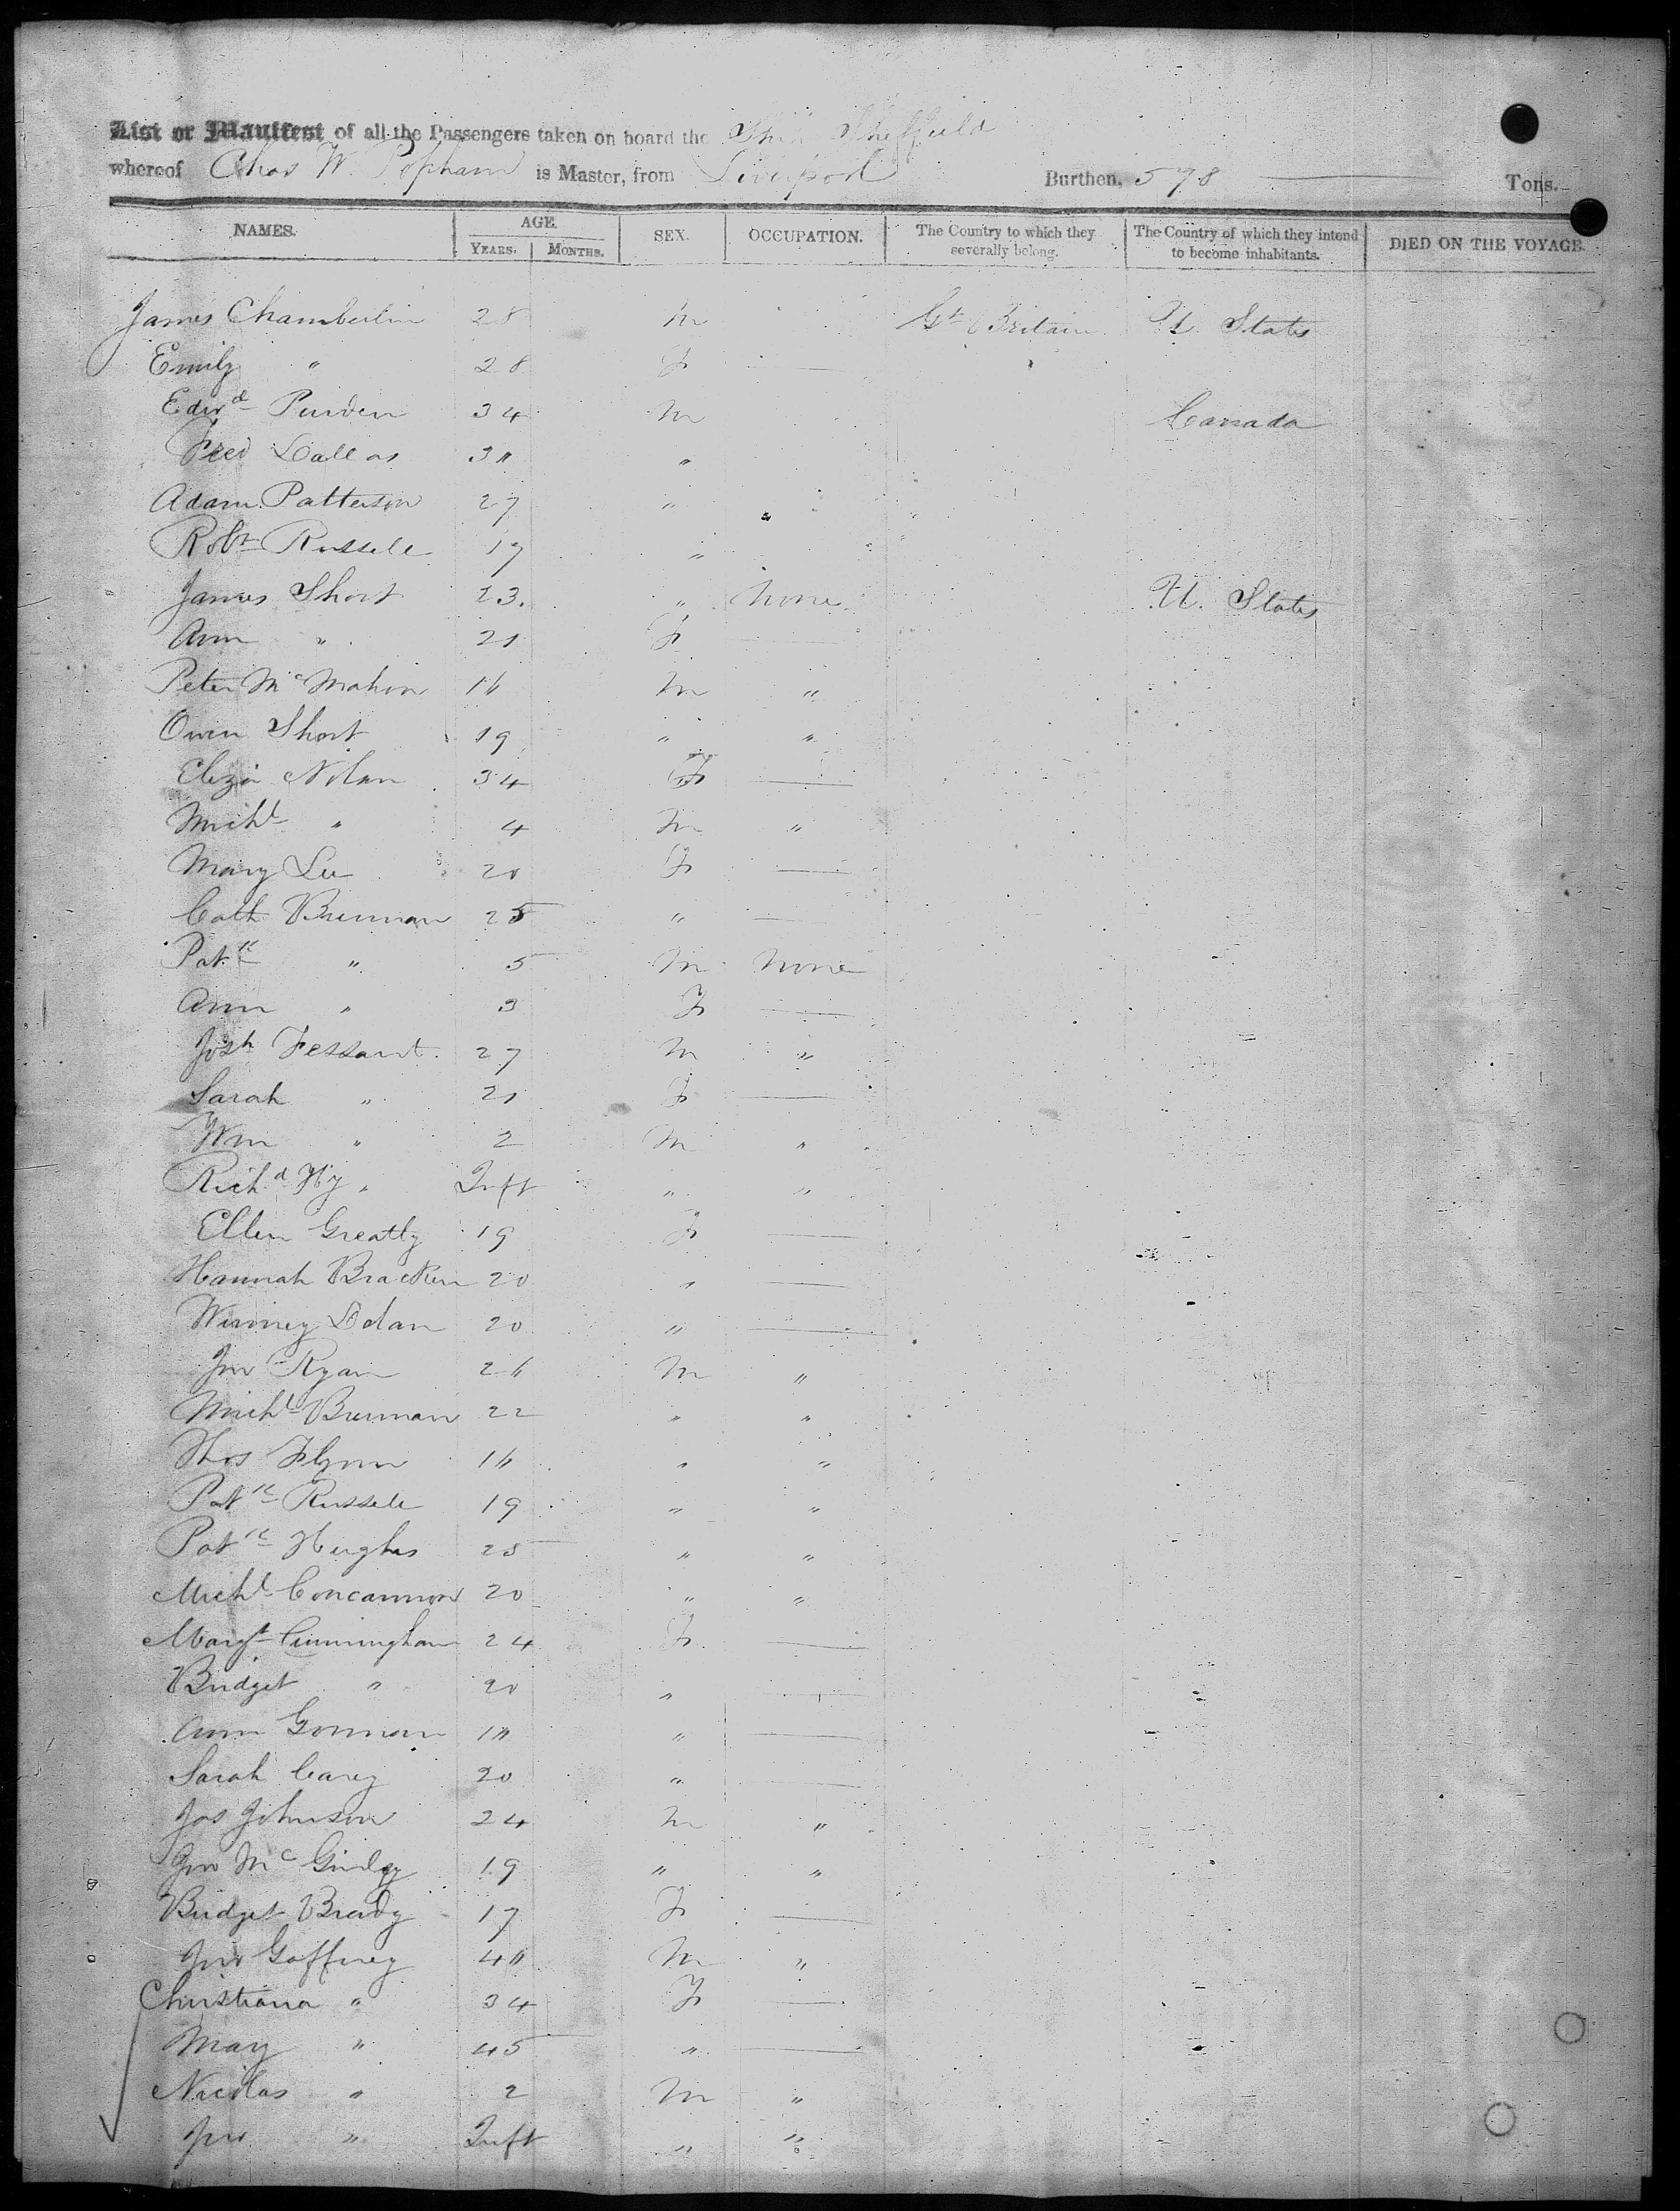 List or Manifest of all the Passengers taken on board the Ship Sheffield
whereof Chas W. Popham is Master, from Liverpool Burthen, 578 Tons.
NAMES. AGE. SEX. OCCUPATION. The Country to which they severally belong. The Country of which they intend to become inhabitants. DIED ON THE VOYAGE.
YEARS. MONTHS.
James Chamberlin 28 M Gt Britain U. States
Emily " 28 F
Edwd Purden 34 M Canada
Fred Dallas 30 "
Adam Patterson 27 "
Robt Russell 17 "
James Short 23 " None U. States
Ann " 21 F
Peter McMahon 16 M "
Owen Short 19 " "
Eliza Nolan 34 F
Michl " 4 M "
Mary Lee 20 F
Cath Brennan 25 "
Patk " 5 M None
Ann " 3 F
Josh Fessant 27 M "
Sarah " 21 F
Wm " 2 M "
Richd Hy " Inft " "
Ellen Greatly 19 F
Hannah Bracken 20 "
Winney Dolan 20 "
Jno Ryan 26 M "
Michl Brennan 22 " "
Thos Flynn 16 " "
Patk Russell 19 " "
Patk Hughes 25 " "
Michl Concannon 20 " "
Margt Cunningham 24 F
Bridget " 20 "
Ann Gorman "
Sarah Carey 20 "
Jos Johnson 24 M "
Jno Mc 19 " "
Bridget Brady 17 F
Jno Gaffney 40 M "
Christiana " 34 F
Mary " 45 "
Nicolas " 2 M "
Jno " Inft " "